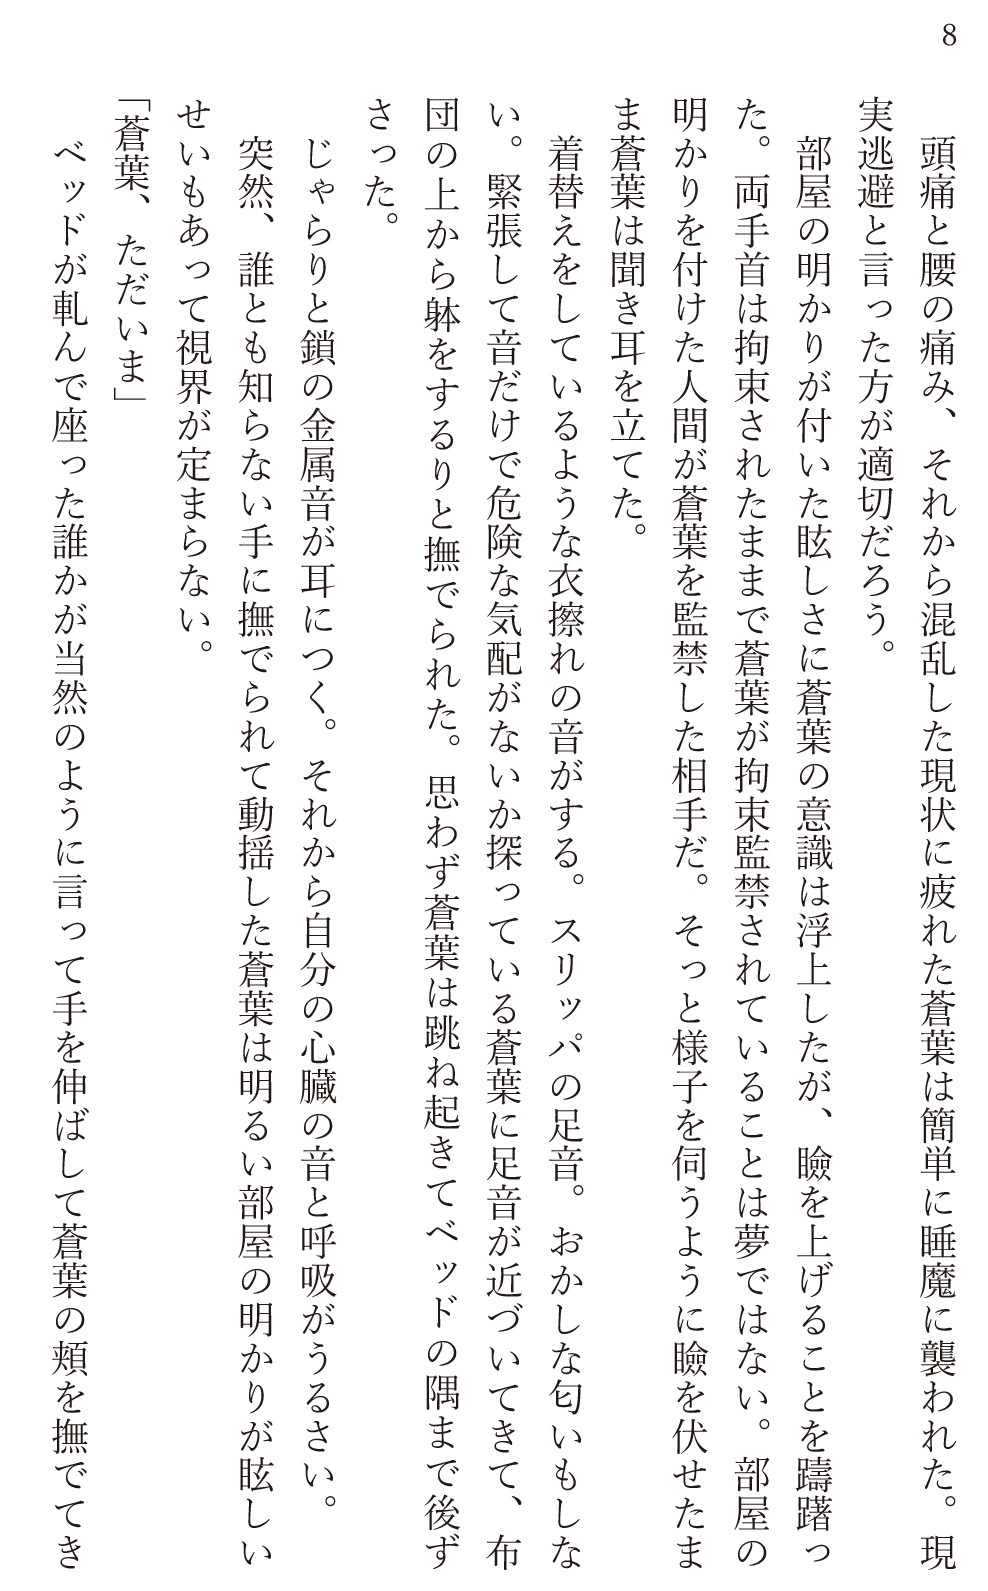 8
　頭痛と腰の痛み、それから混乱した現状に疲れた蒼葉は簡単に睡魔に襲われた。現
実逃避と言った方が適切だろう。
　部屋の明かりが付いた眩しさに蒼葉の意識は浮上したが、瞼を上げることを躊躇っ
た。両手首は拘束されたままで蒼葉が拘束監禁されていることは夢ではない。部屋の
明かりを付けた人間が蒼葉を監禁した相手だ。そっと様子を伺うように瞼を伏せたま
ま蒼葉は聞き耳を立てた。
　着替えをしているような衣擦れの音がする。スリッパの足音。おかしな匂いもしな
い。緊張して音だけで危険な気配がないか探っている蒼葉に足音が近づいてきて、布
団の上から躰をするりと撫でられた。思わず蒼葉は跳ね起きてベッドの隅まで後ず
さった。
　じゃらりと鎖の金属音が耳につく。それから自分の心臓の音と呼吸がうるさい。
　突然、誰とも知らない手に撫でられて動揺した蒼葉は明るい部屋の明かりが眩しい
せいもあって視界が定まらない。
「蒼葉、ただいま」
　ベッドが軋んで座った誰かが当然のように言って手を伸ばして蒼葉の頬を撫でてき